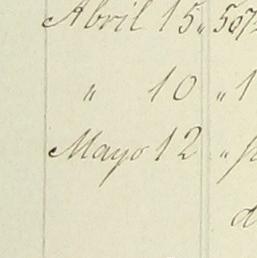 Abril 15 " 507
" 10 " 1
Mayo 12 "
d